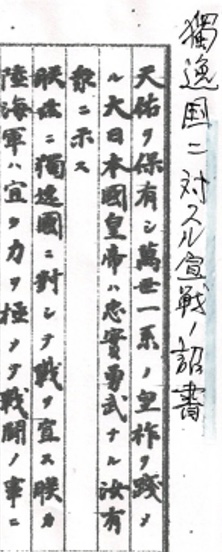 獨逸国ニ対スル宣戦ノ詔書
天佑ヲ保有シ萬世一系ノ皇祚ヲ踐メ
ル大日本國皇帝ハ忠實勇武ナル汝有
衆ニ示ス
朕茲ニ獨逸國ニ對シテ戰ヲ宣ス朕カ
陸海軍ハ宜ク力ヲ極メテ戰鬪ノ事ニ